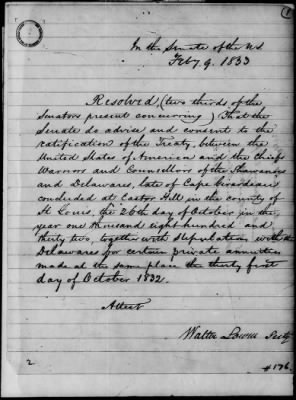 1
In the Senate of the U S
Feby. 9. 1833
Resolved, (two thirds of the
Senators present concurring) That the
Senate do advise and consent to the
ratification of the Treaty, between the
United States of America and the Chiefs
Warriors and Counsellors of the Shawanoes
and Delawares, late of Cape Girardeau
concluded at Castor Hill in the county of
St Louis, the 26th day of October in the
year one thousand eight hundred and
thirty two, together with Stipulations with the
Delawares for certain private annuities
made at the same place the thirty first
day of October 1832.
Attest
Walter Lowrie Secty
2
#176.